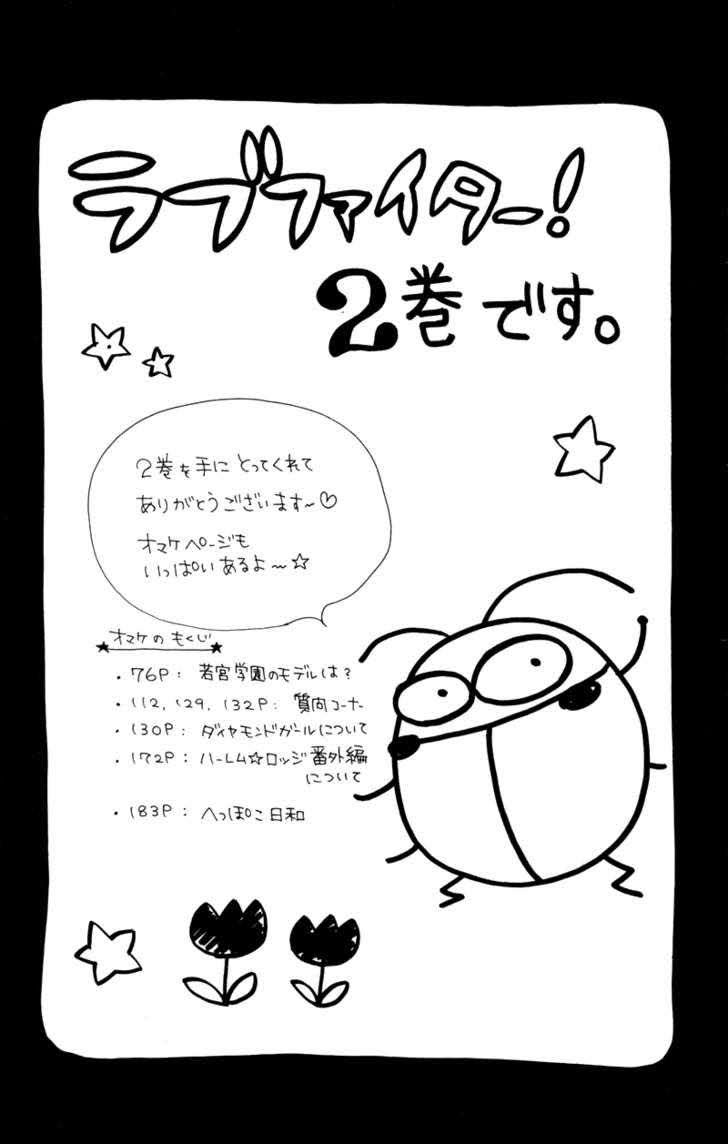 ラブファイター!
2巻です。
2巻を手にとってくれて
ありがとうございます~♡
オマケページも
いっぱいあるよ~☆
★オマケのもくじ★
・76P: 若宮学園のモデルは?
・112, 129, 132P: 質問コーナー
・130P: ダイヤモンドガールについて
・172P: ハーレム☆ロッジ番外編
について
・183P: へっぽこ日和